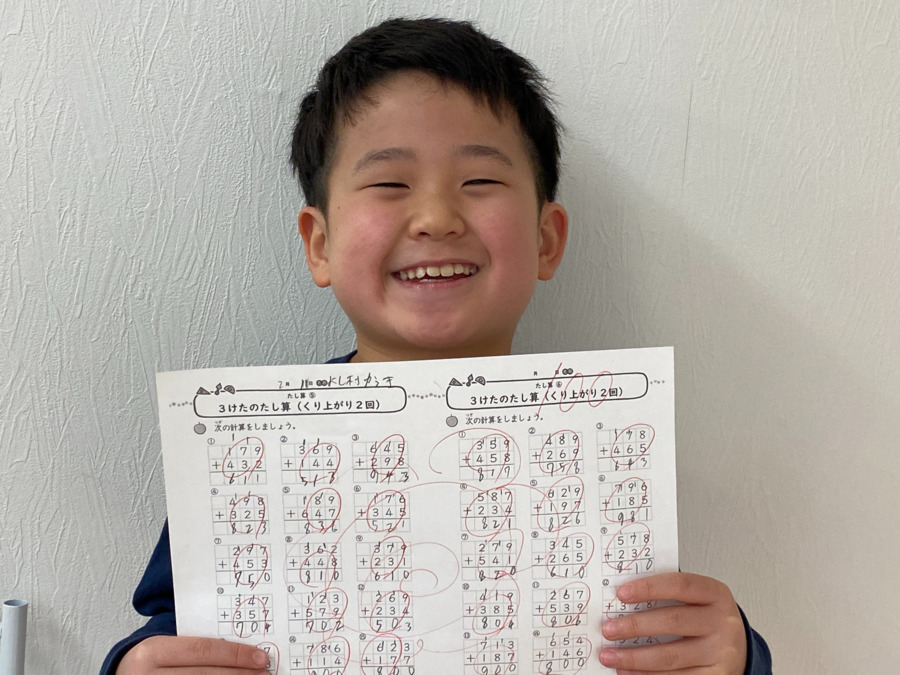 2月 11日
たし算 ⑤
3けたのたし算（くり上がり2回）
次の計算をしましょう。
① ② ③
179 369 645
+432 +144 +298
611 513 943
④ ⑤ ⑥
498 189 176
+325 +647 +345
823 836 521
⑦ ⑧ ⑨
297 362 379
+453 +448 +231
750 810 610
⑩ ⑪ ⑫
347 123 269
+357 +579 +234
704 702 503
⑭ ⑮
7 786 623
+114 +177
900 800
月 日
100
たし算 ⑥
3けたのたし算（くり上がり2回）
次の計算をしましょう。
① ② ③
359 489 178
+458 +269 +465
817 758 643
④ ⑤ ⑥
587 629 796
+234 +197 +185
821 826 981
⑦ ⑧ ⑨
279 345 578
+541 +265 +232
820 610 810
⑩ ⑪ ⑫
419 267
+385 +539 +328
804 806
⑬ ⑭
713 654
+187 +146 524
900 800